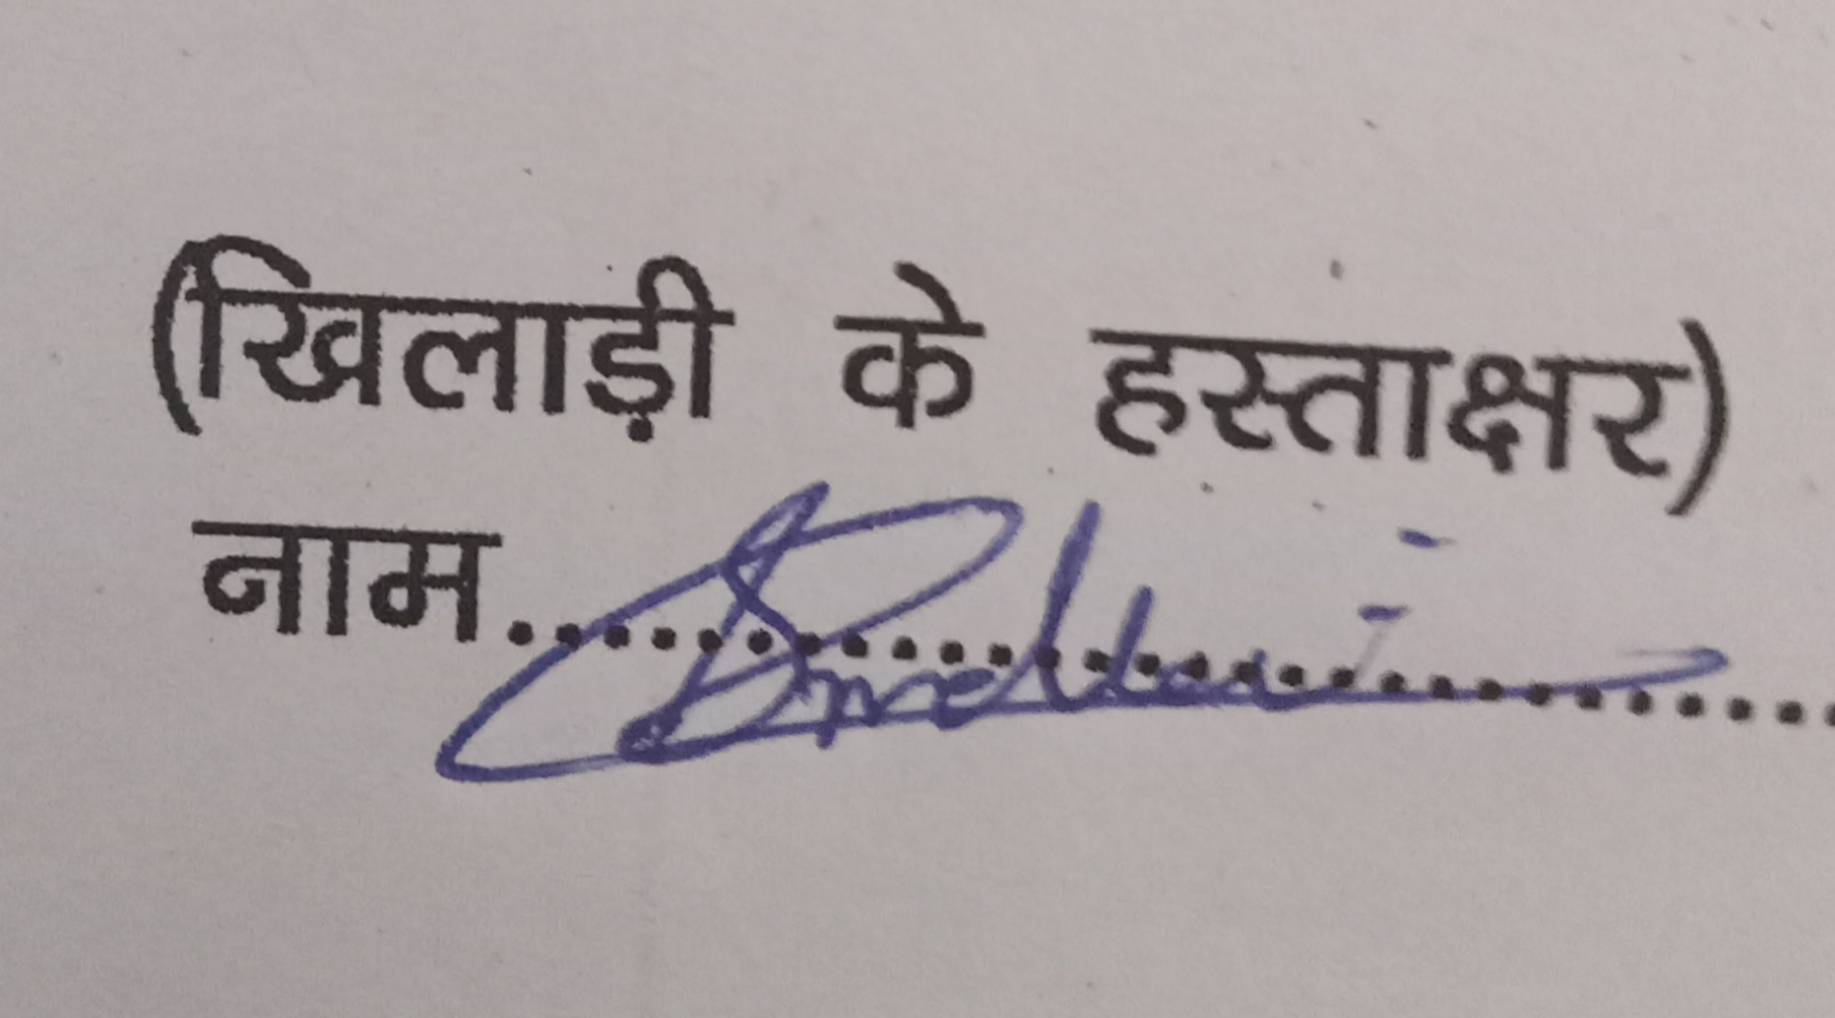 (खिलाड़ी के हस्ताक्षर)
नाम....................................